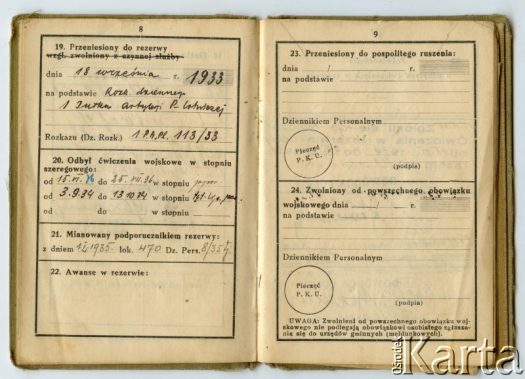 8
19. Przeniesiony do rezerwy
wzgl. zwolniony z czynnej służby
dnia 18 września r. 1933
na podstawie Rozk. dziennego
1 Pułku artylerji P-Lotniczej
Rozkazu (Dz. Rozk.) 1 P.A.Pl. 113/33
20. Odbył ćwiczenia wojskowe w stopniu
szeregowego:
od 15.VI. 36 do 25.VII.36 w stopniu
od 3.9.34 do 13.10.34 w stopniu
od do w stopniu
21. Mianowany podporucznikiem rezerwy:
z dniem 1.I.1935. lok. 470 Dz. Pers. 8/35
22. Awanse w rezerwie:
9
23. Przeniesiony do pospolitego ruszenia:
dnia / r.
na podstawie
Dziennikiem Personalnym
Pieczęć
P. K. U.
(podpis)
24. Zwolniony od powszechnego obowiązku
wojskowego dnia / r.
na podstawie
Dziennikiem Personalnym
Pieczęć
P. K. U.
(podpis)
UWAGA: Zwolnieni od powszechnego obowiązku woj-
skowego nie podlegają obowiązkowi osobistego zgłasza-
nia się do urzędów gminnych (meldunkowych).
Ośrodek
Karta